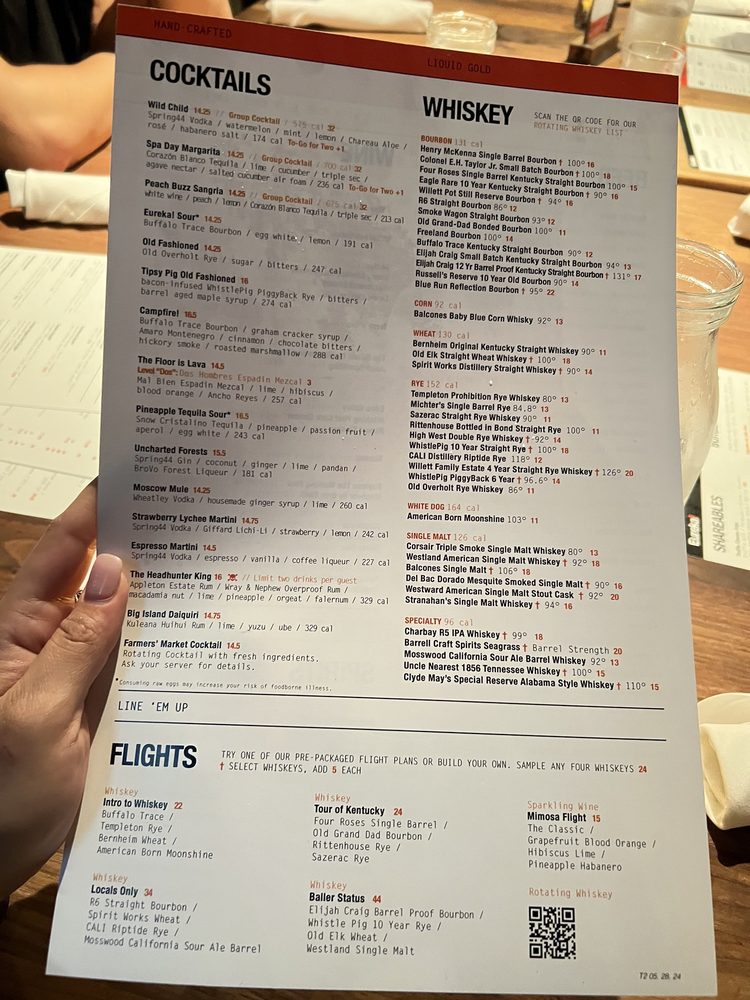 HAND-CRAFTED
COCKTAILS
Wild Child 14.25 // Group Cocktail / 575 cal 32
Spring44 Vodka / watermelon / mint / lemon / Chareau Aloe /
rosé / habanero salt / 174 cal To-Go for Two +1
Spa Day Margarita 14.25 // Group Cocktail / 700 cal 32
Corazón Blanco Tequila / lime / cucumber / triple sec /
agave nectar / salted cucumber air foam / 236 cal To-Go for Two +1
Peach Buzz Sangria 14.25 // Group Cocktail / 675 cal 32
white wine / peach / lemon / Corazón Blanco Tequila / triple sec / 213 cal
Eureka! Sour* 14.25
Buffalo Trace Bourbon / egg white / lemon / 191 cal
Old Fashioned 14.25
Old Overholt Rye / sugar / bitters / 247 cal
Tipsy Pig Old Fashioned 16
bacon-infused WhistlePig PiggyBack Rye / bitters /
barrel aged maple syrup / 274 cal
Campfire! 16.5
Buffalo Trace Bourbon / graham cracker syrup /
Amaro Montenegro / cinnamon / chocolate bitters /
hickory smoke / roasted marshmallow / 288 cal
The Floor is Lava 14.5
Level "Dos": Dos Hombres Espadin Mezcal 3
Mal Bien Espadin Mezcal / lime / hibiscus /
blood orange / Ancho Reyes / 257 cal
Pineapple Tequila Sour* 16.5
Snow Cristalino Tequila / pineapple / passion fruit /
aperol / egg white / 243 cal
Uncharted Forests 15.5
Spring44 Gin / coconut / ginger / lime / pandan /
BroVo Forest Liqueur / 181 cal
Moscow Mule 14.25
Wheatley Vodka / housemade ginger syrup / lime / 260 cal
Strawberry Lychee Martini 14.75
Spring44 Vodka / Giffard Lichi-Li / strawberry / lemon / 242 cal
Espresso Martini 14.5
Spring44 Vodka / espresso / vanilla / coffee liqueur / 227 cal
The Headhunter King 16 // Limit two drinks per guest
Appleton Estate Rum / Wray & Nephew Overproof Rum /
macadamia nut / lime / pineapple / orgeat / falernum / 329 cal
Big Island Daiquiri 14.75
Kuleana Huihui Rum / lime / yuzu / ube / 329 cal
Farmers' Market Cocktail 14.5
Rotating Cocktail with fresh ingredients.
Ask your server for details.
*Consuming raw eggs may increase your risk of foodborne illness.
LIQUID GOLD
WHISKEY
SCAN THE QR-CODE FOR OUR
ROTATING WHISKEY LIST
BOURBON 131 cal
Henry McKenna Single Barrel Bourbon † 100° 16
Colonel E.H. Taylor Jr. Small Batch Bourbon † 100° 18
Four Roses Single Barrel Kentucky Straight Bourbon 100° 15
Eagle Rare 10 Year Kentucky Straight Bourbon † 90° 16
Willett Pot Still Reserve Bourbon † 94° 16
R6 Straight Bourbon 86° 12
Smoke Wagon Straight Bourbon 93° 12
Old Grand-Dad Bonded Bourbon 100° 11
Freeland Bourbon 100° 14
Buffalo Trace Kentucky Straight Bourbon 90° 12
Elijah Craig Small Batch Kentucky Straight Bourbon 94° 13
Elijah Craig 12 Yr Barrel Proof Kentucky Straight Bourbon † 131° 17
Russell's Reserve 10 Year Old Bourbon 90° 14
Blue Run Reflection Bourbon † 95° 22
CORN 92 cal
Balcones Baby Blue Corn Whisky 92° 13
WHEAT 130 cal
Bernheim Original Kentucky Straight Whiskey 90° 11
Old Elk Straight Wheat Whiskey † 100° 18
Spirit Works Distillery Straight Whiskey † 90° 14
RYE 152 cal
Templeton Prohibition Rye Whiskey 80° 13
Michter's Single Barrel Rye 84.8° 13
Sazerac Straight Rye Whiskey 90° 11
Rittenhouse Bottled in Bond Straight Rye 100° 11
High West Double Rye Whiskey † 92° 14
WhistlePig 10 Year Straight Rye † 100° 18
CALI Distillery Riptide Rye 118° 12
Willett Family Estate 4 Year Straight Rye Whiskey † 126° 20
WhistlePig PiggyBack 6 Year † 96.6° 14
Old Overholt Rye Whiskey 86° 11
WHITE DOG 164 cal
American Born Moonshine 103° 11
SINGLE MALT 126 cal
Corsair Triple Smoke Single Malt Whiskey 80° 13
Westland American Single Malt Whiskey † 92° 18
Balcones Single Malt † 106° 18
Del Bac Dorado Mesquite Smoked Single Malt † 90° 16
Westward American Single Malt Stout Cask † 92° 20
Stranahan's Single Malt Whiskey † 94° 16
SPECIALTY 96 cal
Charbay R5 IPA Whiskey † 99° 18
Barrell Craft Spirits Seagrass † Barrel Strength 20
Mosswood California Sour Ale Barrel Whiskey 92° 13
Uncle Nearest 1856 Tennessee Whiskey † 100° 15
Clyde May's Special Reserve Alabama Style Whiskey † 110° 15
LINE 'EM UP
FLIGHTS
TRY ONE OF OUR PRE-PACKAGED FLIGHT PLANS OR BUILD YOUR OWN. SAMPLE ANY FOUR WHISKEYS 24
† SELECT WHISKEYS, ADD 5 EACH
Whiskey
Intro to Whiskey 22
Buffalo Trace /
Templeton Rye /
Bernheim Wheat /
American Born Moonshine
Whiskey
Tour of Kentucky 24
Four Roses Single Barrel /
Old Grand Dad Bourbon /
Rittenhouse Rye /
Sazerac Rye
Sparkling Wine
Mimosa Flight 15
The Classic /
Grapefruit Blood Orange /
Hibiscus Lime /
Pineapple Habanero
Whiskey
Locals Only 34
R6 Straight Bourbon /
Spirit Works Wheat /
CALI Riptide Rye /
Mosswood California Sour Ale Barrel
Whiskey
Baller Status 44
Elijah Craig Barrel Proof Bourbon /
Whistle Pig 10 Year Rye /
Old Elk Wheat /
Westland Single Malt
Rotating Whiskey
T2 05. 28. 24
SHAREABLES